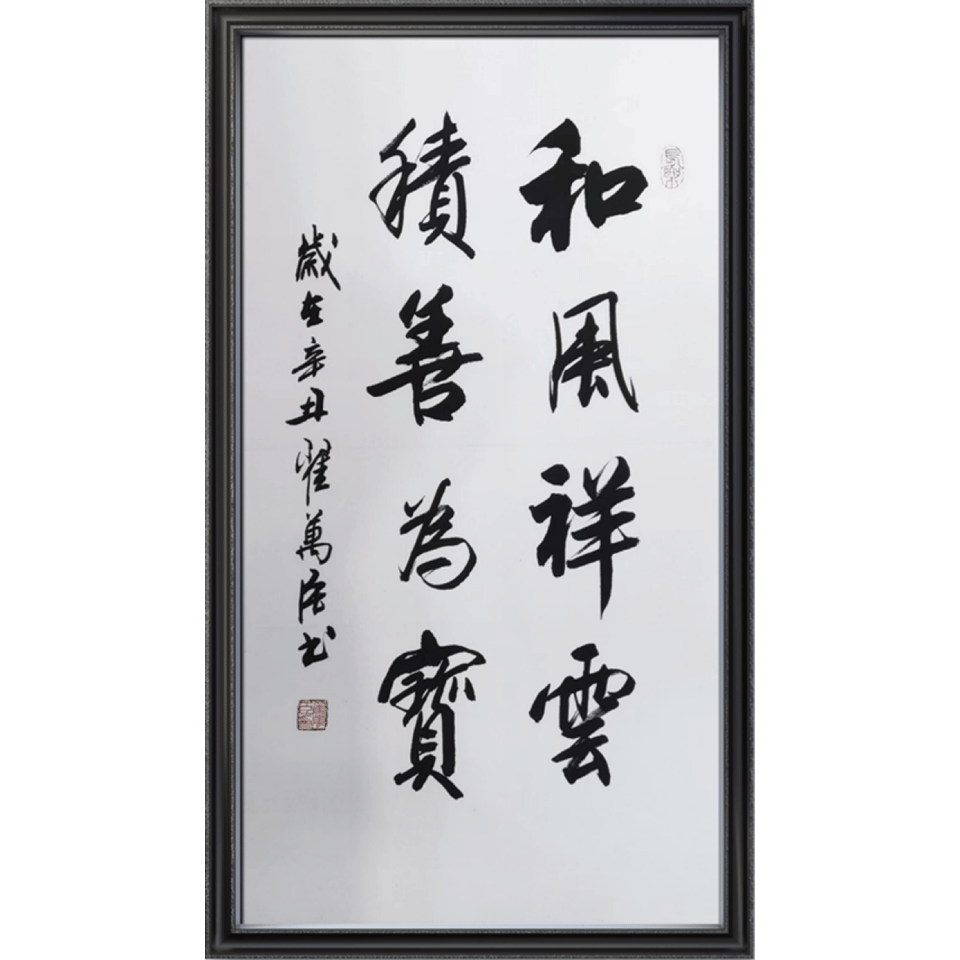 和風祥雲
積善為寶
歲在辛丑翟萬居書